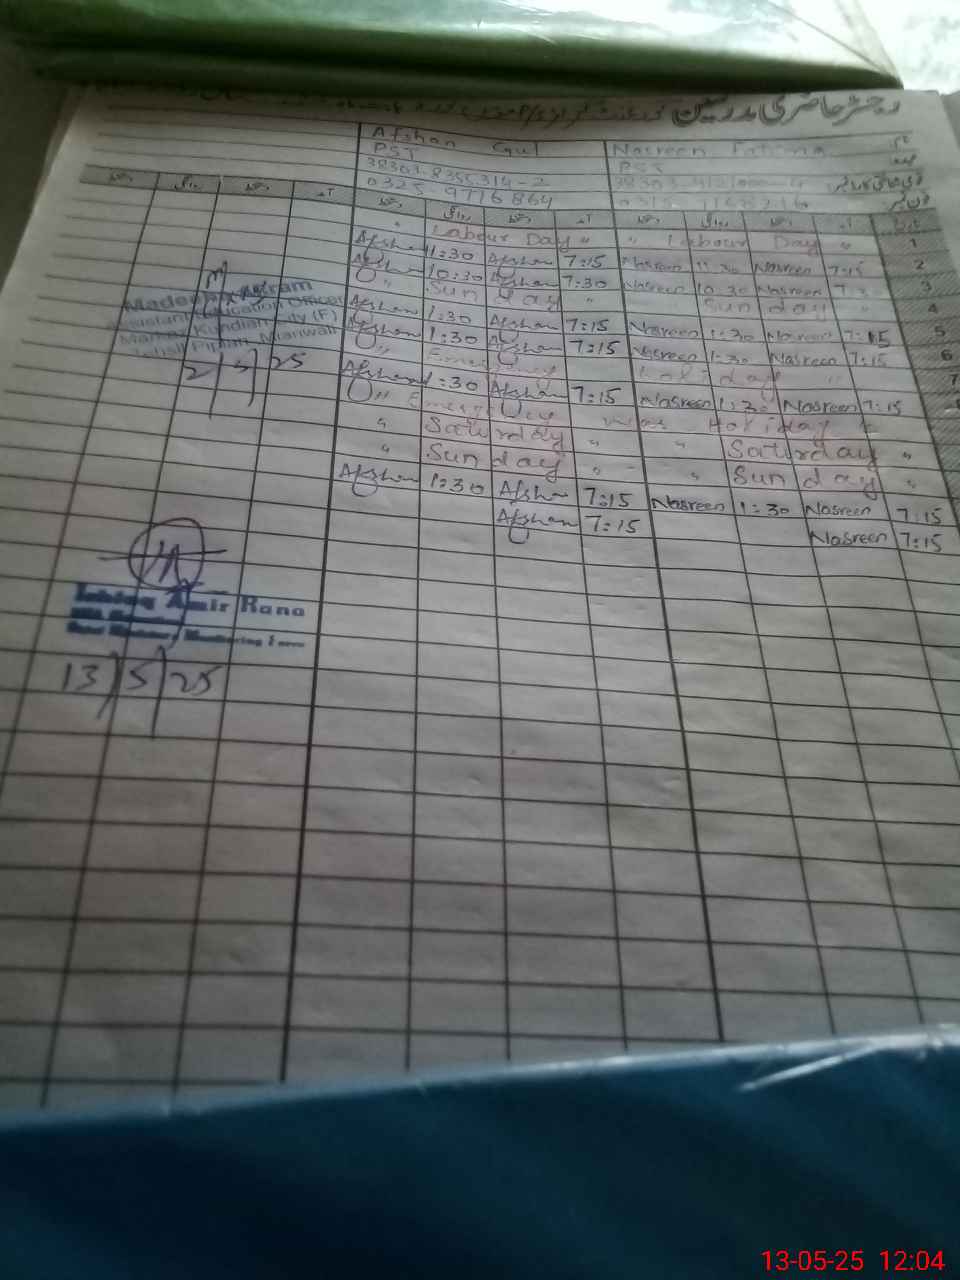 رجسٹر حاضری مدرسین
Afshan Gul Nasreen Fatima نام
PST PST عہدہ
38303-8355314-2 38303- قومی شناختی کارڈ نمبر
0325-9776864 0315- فون نمبر
دستخط روانگی دستخط آمد دستخط روانگی دستخط آمد دستخط روانگی دستخط آمد تاریخ
" Labour Day " " Labour Day " 1
Afshan 11:30 Afshan 7:15 Nasreen 11:30 Nasreen 7:15 2
Afshan 10:30 Afshan 7:30 Nasreen 10:30 Nasreen 3
" Sunday " Sunday " 4
Afshan 1:30 Afshan 7:15 Nasreen 1:30 Nasreen 7:15 5
Afshan 1:30 Afshan 7:15 Nasreen 1:30 Nasreen 7:15 6
" Emergency Holiday " 7
Afshan 1:30 Afshan 7:15 Nasreen 1:30 Nasreen 7:15
" Emergency war Holiday "
" Saturday " " Saturday "
" Sunday " " Sunday "
Afshan 1:30 Afshan 7:15 Nasreen 1:30 Nasreen 7:15
Afshan 7:15 Nasreen 7:15
Madeeha Akram
Assistant Education Officer
Markaz Kundian City (F)
Tehsil Piplan, Mianwali
2/5/25
Ishtiaq Amir Rana
13/5/25
13-05-25 12:04